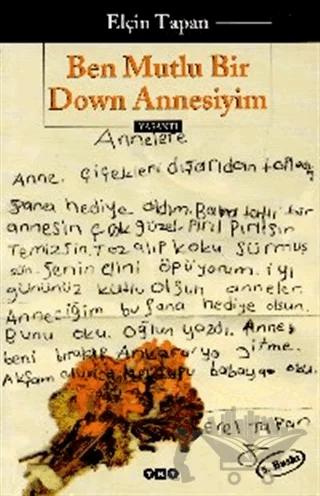 Elçin Tapan
Ben Mutlu Bir
Down Annesiyim
YAŞANTI
Annelere
Anne. Çiçekleri dışarıdan topladım
Sana hediye aldım. Bana tatlı bir
annesin çok güzel. Pırıl Pırılsın
Temizsin. Toz alıp koku sürmüş
sün. Senin elini öpüyorum. iyi
gününüz kutlu olsun anneler.
Anneciğim bu Sana hediye olsun.
Bunu oku. Oğlun yazdı. Anne,
beni bırakıp Ankara'ya gitme.
Akşam olunca mektubu babaya oku.
Tapan
5. Baskı
YKY